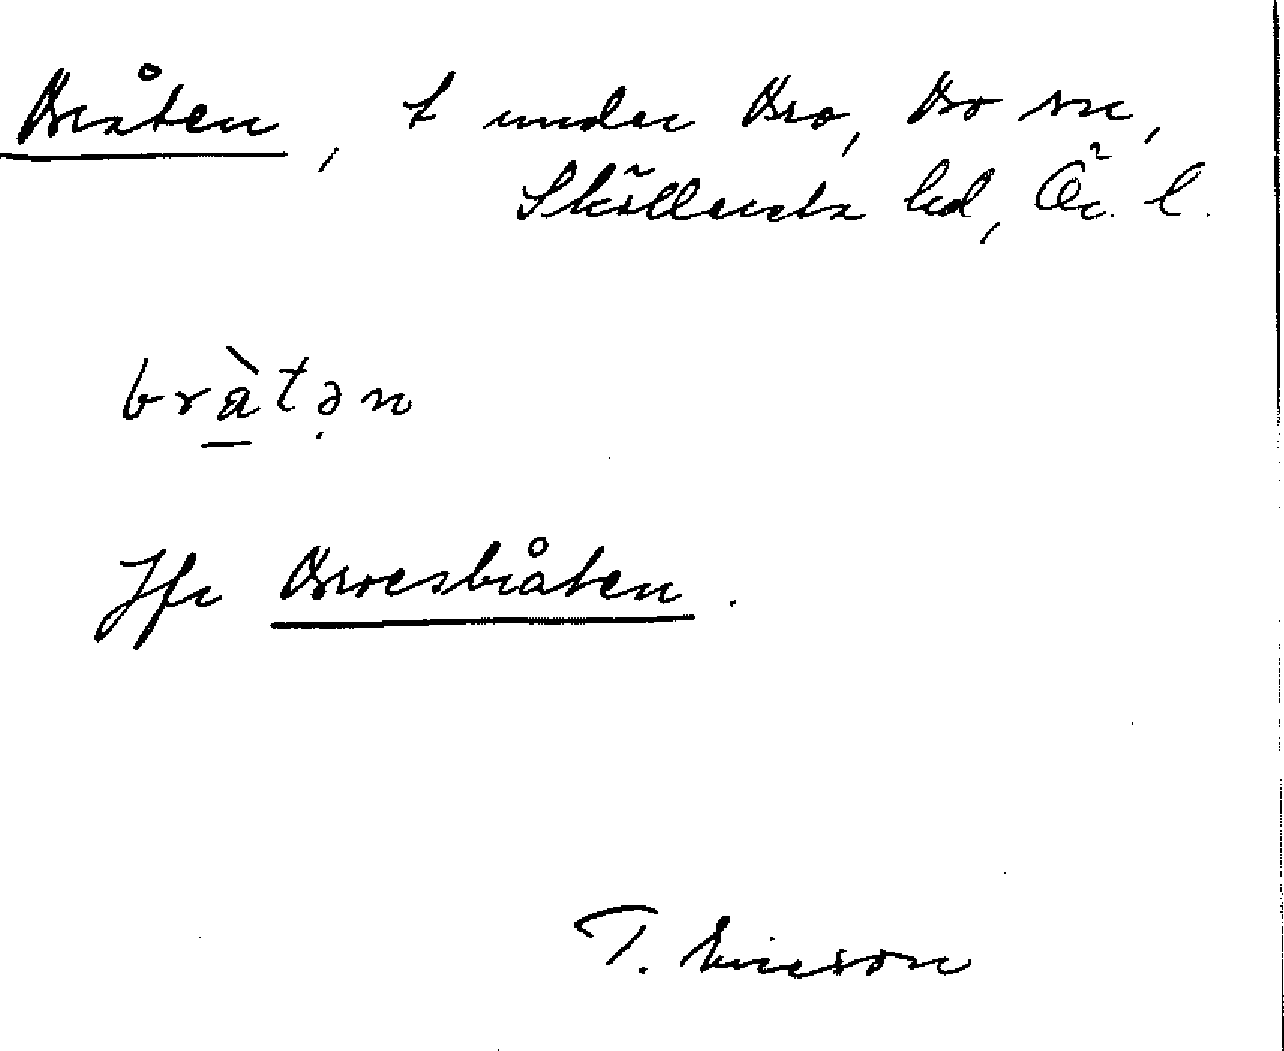 Bråten, t under Bro, Bo sn,
Sköllersta hd, Ör. l.
bràtən
Jfr Broesbråten.
T. Ericson